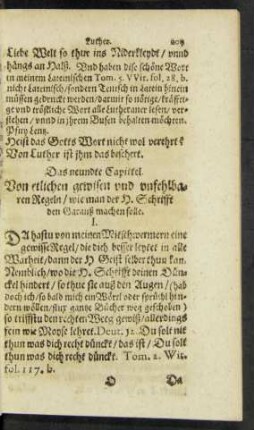 Luther. 209
Liebe Welt so thur ins Niderkleydt / vnnd
hångs an Halß. Vnd haben dise schöne Wort
in meinem Lateinischen Tom. 5. VVit. fol. 18, b.
nicht Lateinisch / sondern Teutsch in Latein hinein
müssen gedruckt werden / darmit so nötige / kräffti-
ge vnd tröstliche Wort alle Lutheraner lesen / ver-
stehen / vnnd in jhrem Busen behalten möchten.
Pfuy Lentz.
Heist das Gotts Wort nicht wol verehrt?
Von Luther ist jhm das beschert.
Das neundte Capittel
Von etlichen gewisen vnd vnfehlba-
ren Regeln / wie man der H. Schrifft
den Garauß machen solle.
I.
DA hastu von meinen Witschwermern eine
gewisse Regel / die dich besser leytet in alle
Warheit / dann der H Geist selber thun kan.
Nemblich / wo die H. Schrifft deinen Dün-
ckel hindert / so thue sie auß den Augen / (hab
doch ich / so bald mich ein Wörtl oder sprüchl hin-
dern wöllen / flux gantze Bücher weg geschoben)
so triffstu den rechten Weeg gewiß / allerdings
sein wie Moyse lehret. Deut. 12. Du solt nit
thun was dich recht dünckt / das ist / Du solt
thun was dich recht dünckt. Tom. 2. Wit.
fol. 117. b.
O Da